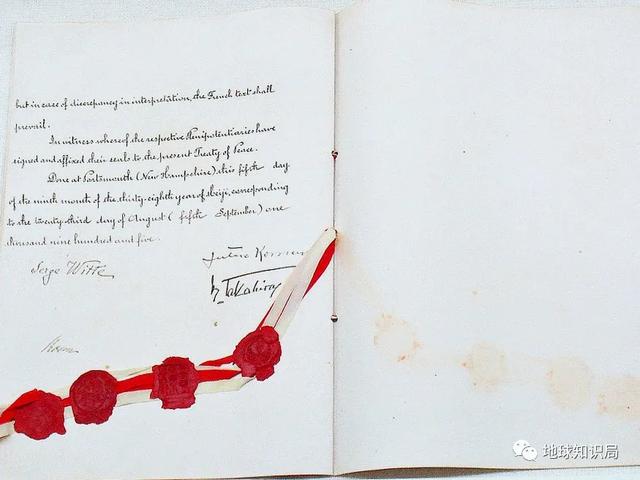 but in case of discrepancy in interpretation, the French text shall
prevail.
In witness whereof the respective Plenipotentiaries have
signed and affixed their seals to the present Treaty of Peace.
Done at Portsmouth (New Hampshire) this fifth day
of the ninth month of the thirty-eighth year of Meiji, corresponding
to the twenty-third day of August (fifth September) one
thousand nine hundred and five.
Serge Witte
Jutaro Komura
K. Takahira
Rosen
地球知识局